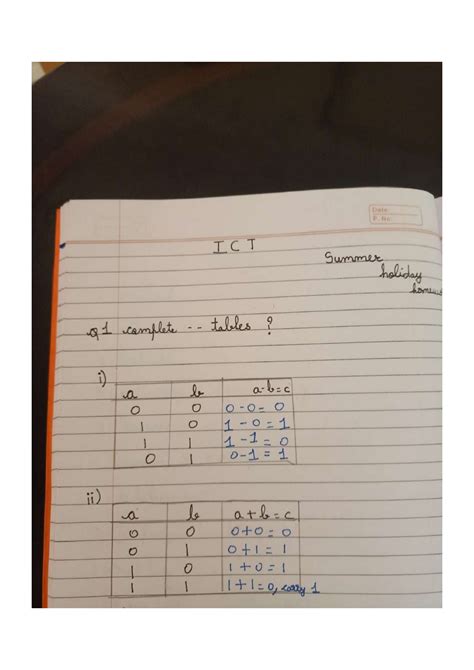 Date
P. No.
ICT
Summer
holiday
Q1 complete -- tables ?
i)
a b a-b=c
0 0 0-0=0
1 0 1-0=1
1 1 1-1=0
0 1 0-1=1
ii)
a b a+b=c
0 0 0+0=0
0 1 0+1=1
1 0 1+0=1
1 1 1+1=0, carry 1